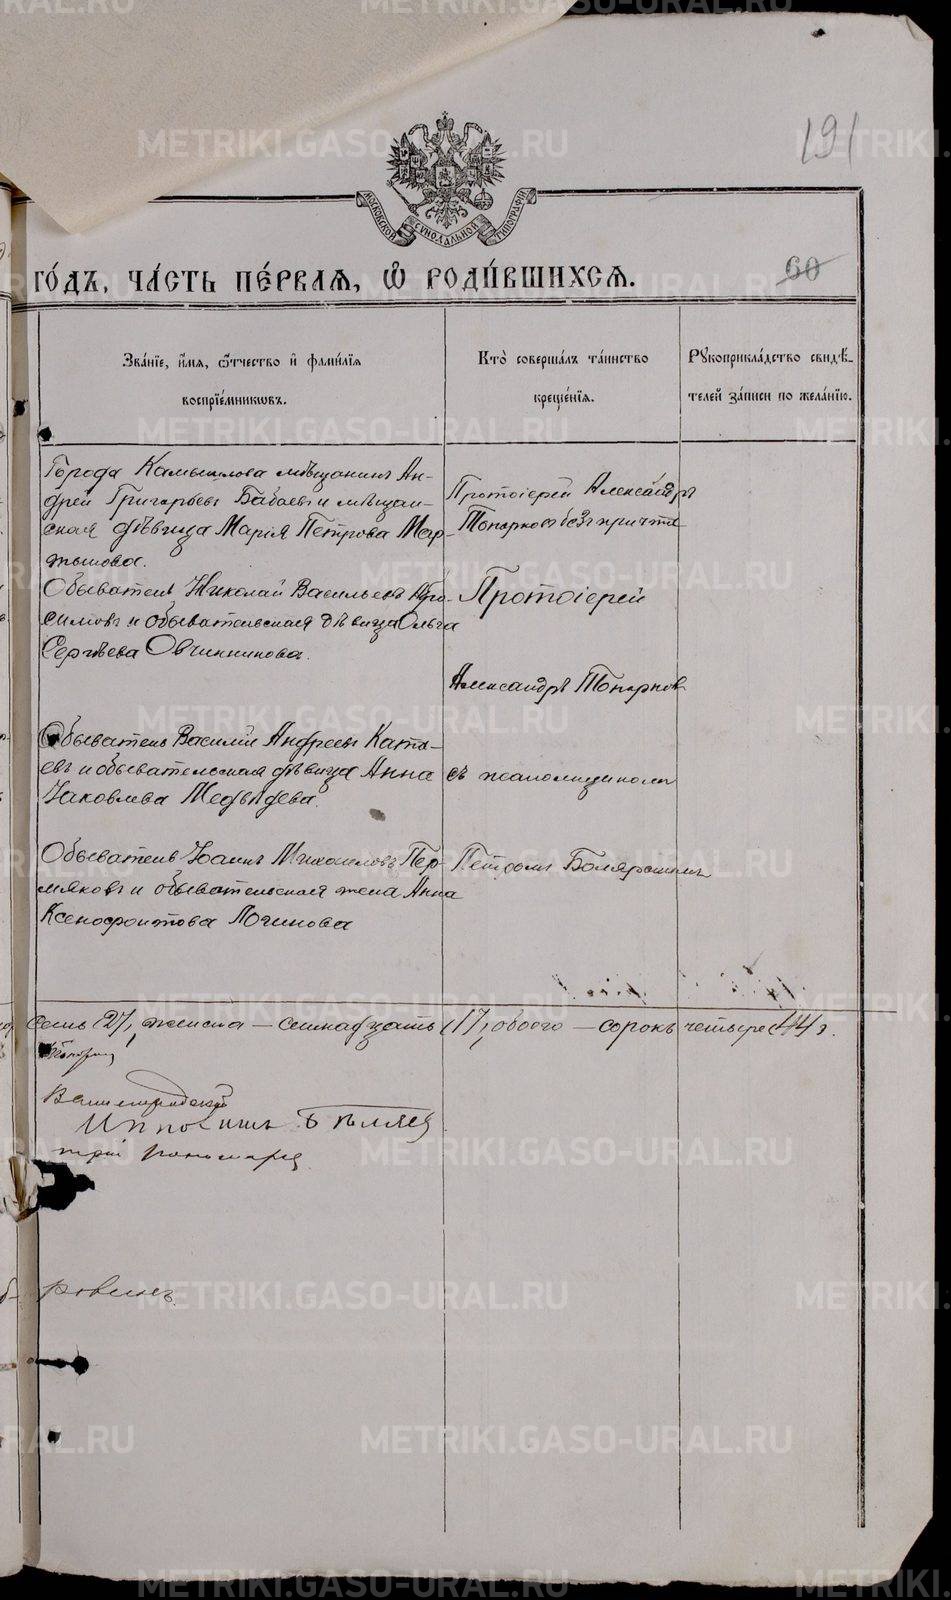 METRIKI.GASO-URAL.RU
191
МОСКОВСКОЙ СѴНОДАЛЬНОЙ ТИПОГРАФІИ
го́дъ, ча́сть пе́рваѧ, ѡ҆ роди́вшихсѧ.
60
Зва́нїе, и҆́мѧ, ѻ҆́тчество и҆ фами́лїѧ
воспрїе́мникѡвъ.
Кто̀ соверша́лъ та́инство
креще́нїѧ.
Рꙋкоприкла́дство свидѣ́-
телей за́писи по жела́нїю.
Города Камышлова мѣщанинъ Ан-
дрей Григорьевъ Бабаевъ и мѣщан-
ская дѣвица Марія Петрова Мар-
тышова.
Протоіерей Александръ
Топорковъ безъ причта
Обыватель Николай Васильевъ
симовъ и обывательская дѣвица Ольга
Сергѣева Овчинникова.
Протоіерей
Александръ Топорков
Обыватель Василій Андреевъ Ката-
евъ и обывательская дѣвица Анна
Іаковлева Медвѣдева.
съ псаломщикомъ
Обыватель Іоаннъ Михаиловъ Пер-
мяковъ и обывательская жена Анна
Ксенофонтова Логинова
Петромъ Бояршинымъ
семь 27, женска — семнадцать 17, обоего — сорокъ четыре 44).
Ипполитъ Бѣляев
трій Пономарев
ровинъ.